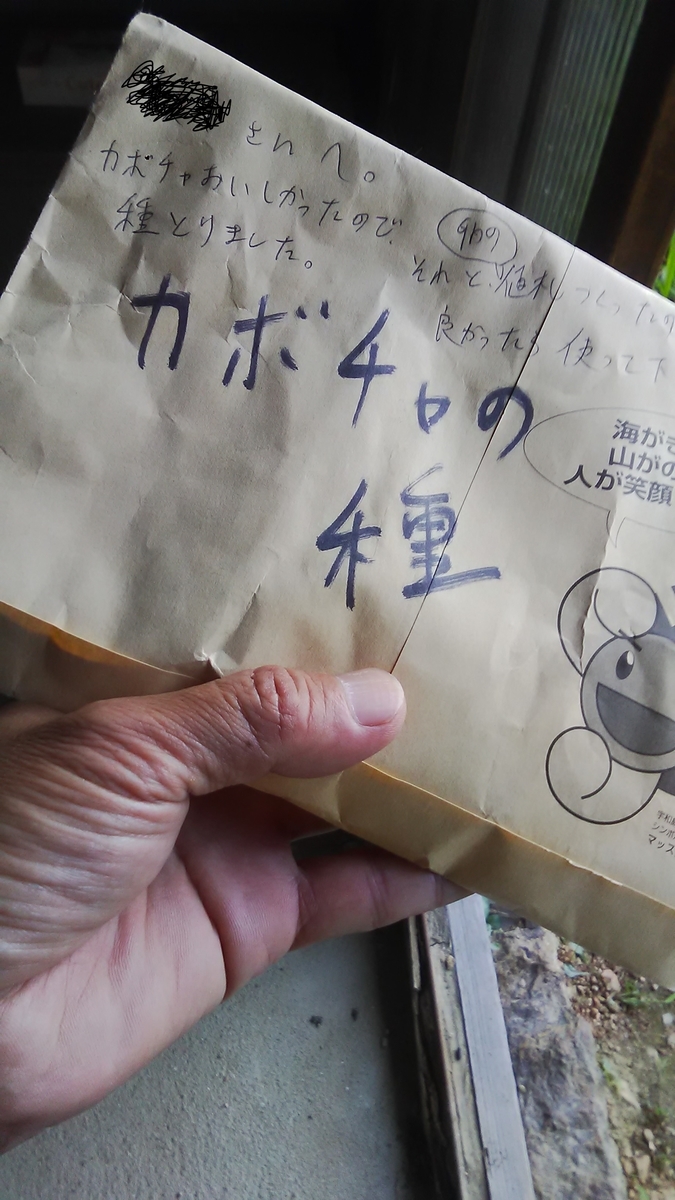 さんへ。
カボチャおいしかったので、
種とりました。
それと、値札つくったの
良かったら使って下
カボチャの
種
海がき
山がの
人が笑顔
宇和島
シンボ
マップ